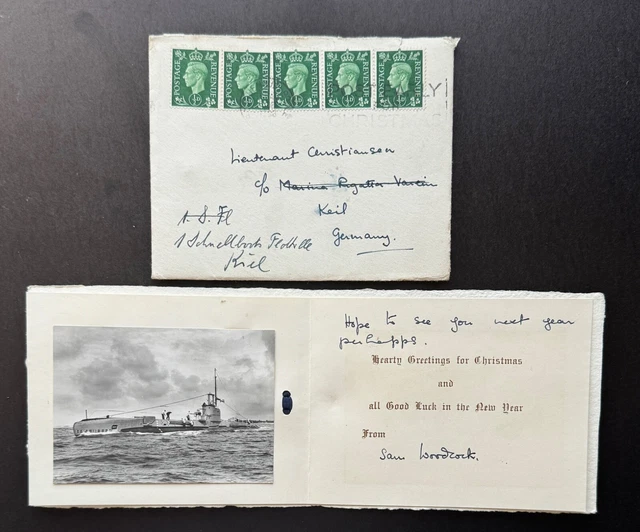 POSTAGE REVENUE POSTAGE REVENUE POSTAGE REVENUE POSTAGE REVENUE POSTAGE REVENUE
½D ½D ½D ½D ½D
CHRISTMAS
Lieutenant Christiansen
c/o Marine Regatta Verein
Keil
Germany.
1. S. Fl
1 Schnellboots Flottille
Kiel
Hope to see you next year
perhapps.
Hearty Greetings for Christmas
and
all Good Luck in the New Year
From
Sam Woodcock.